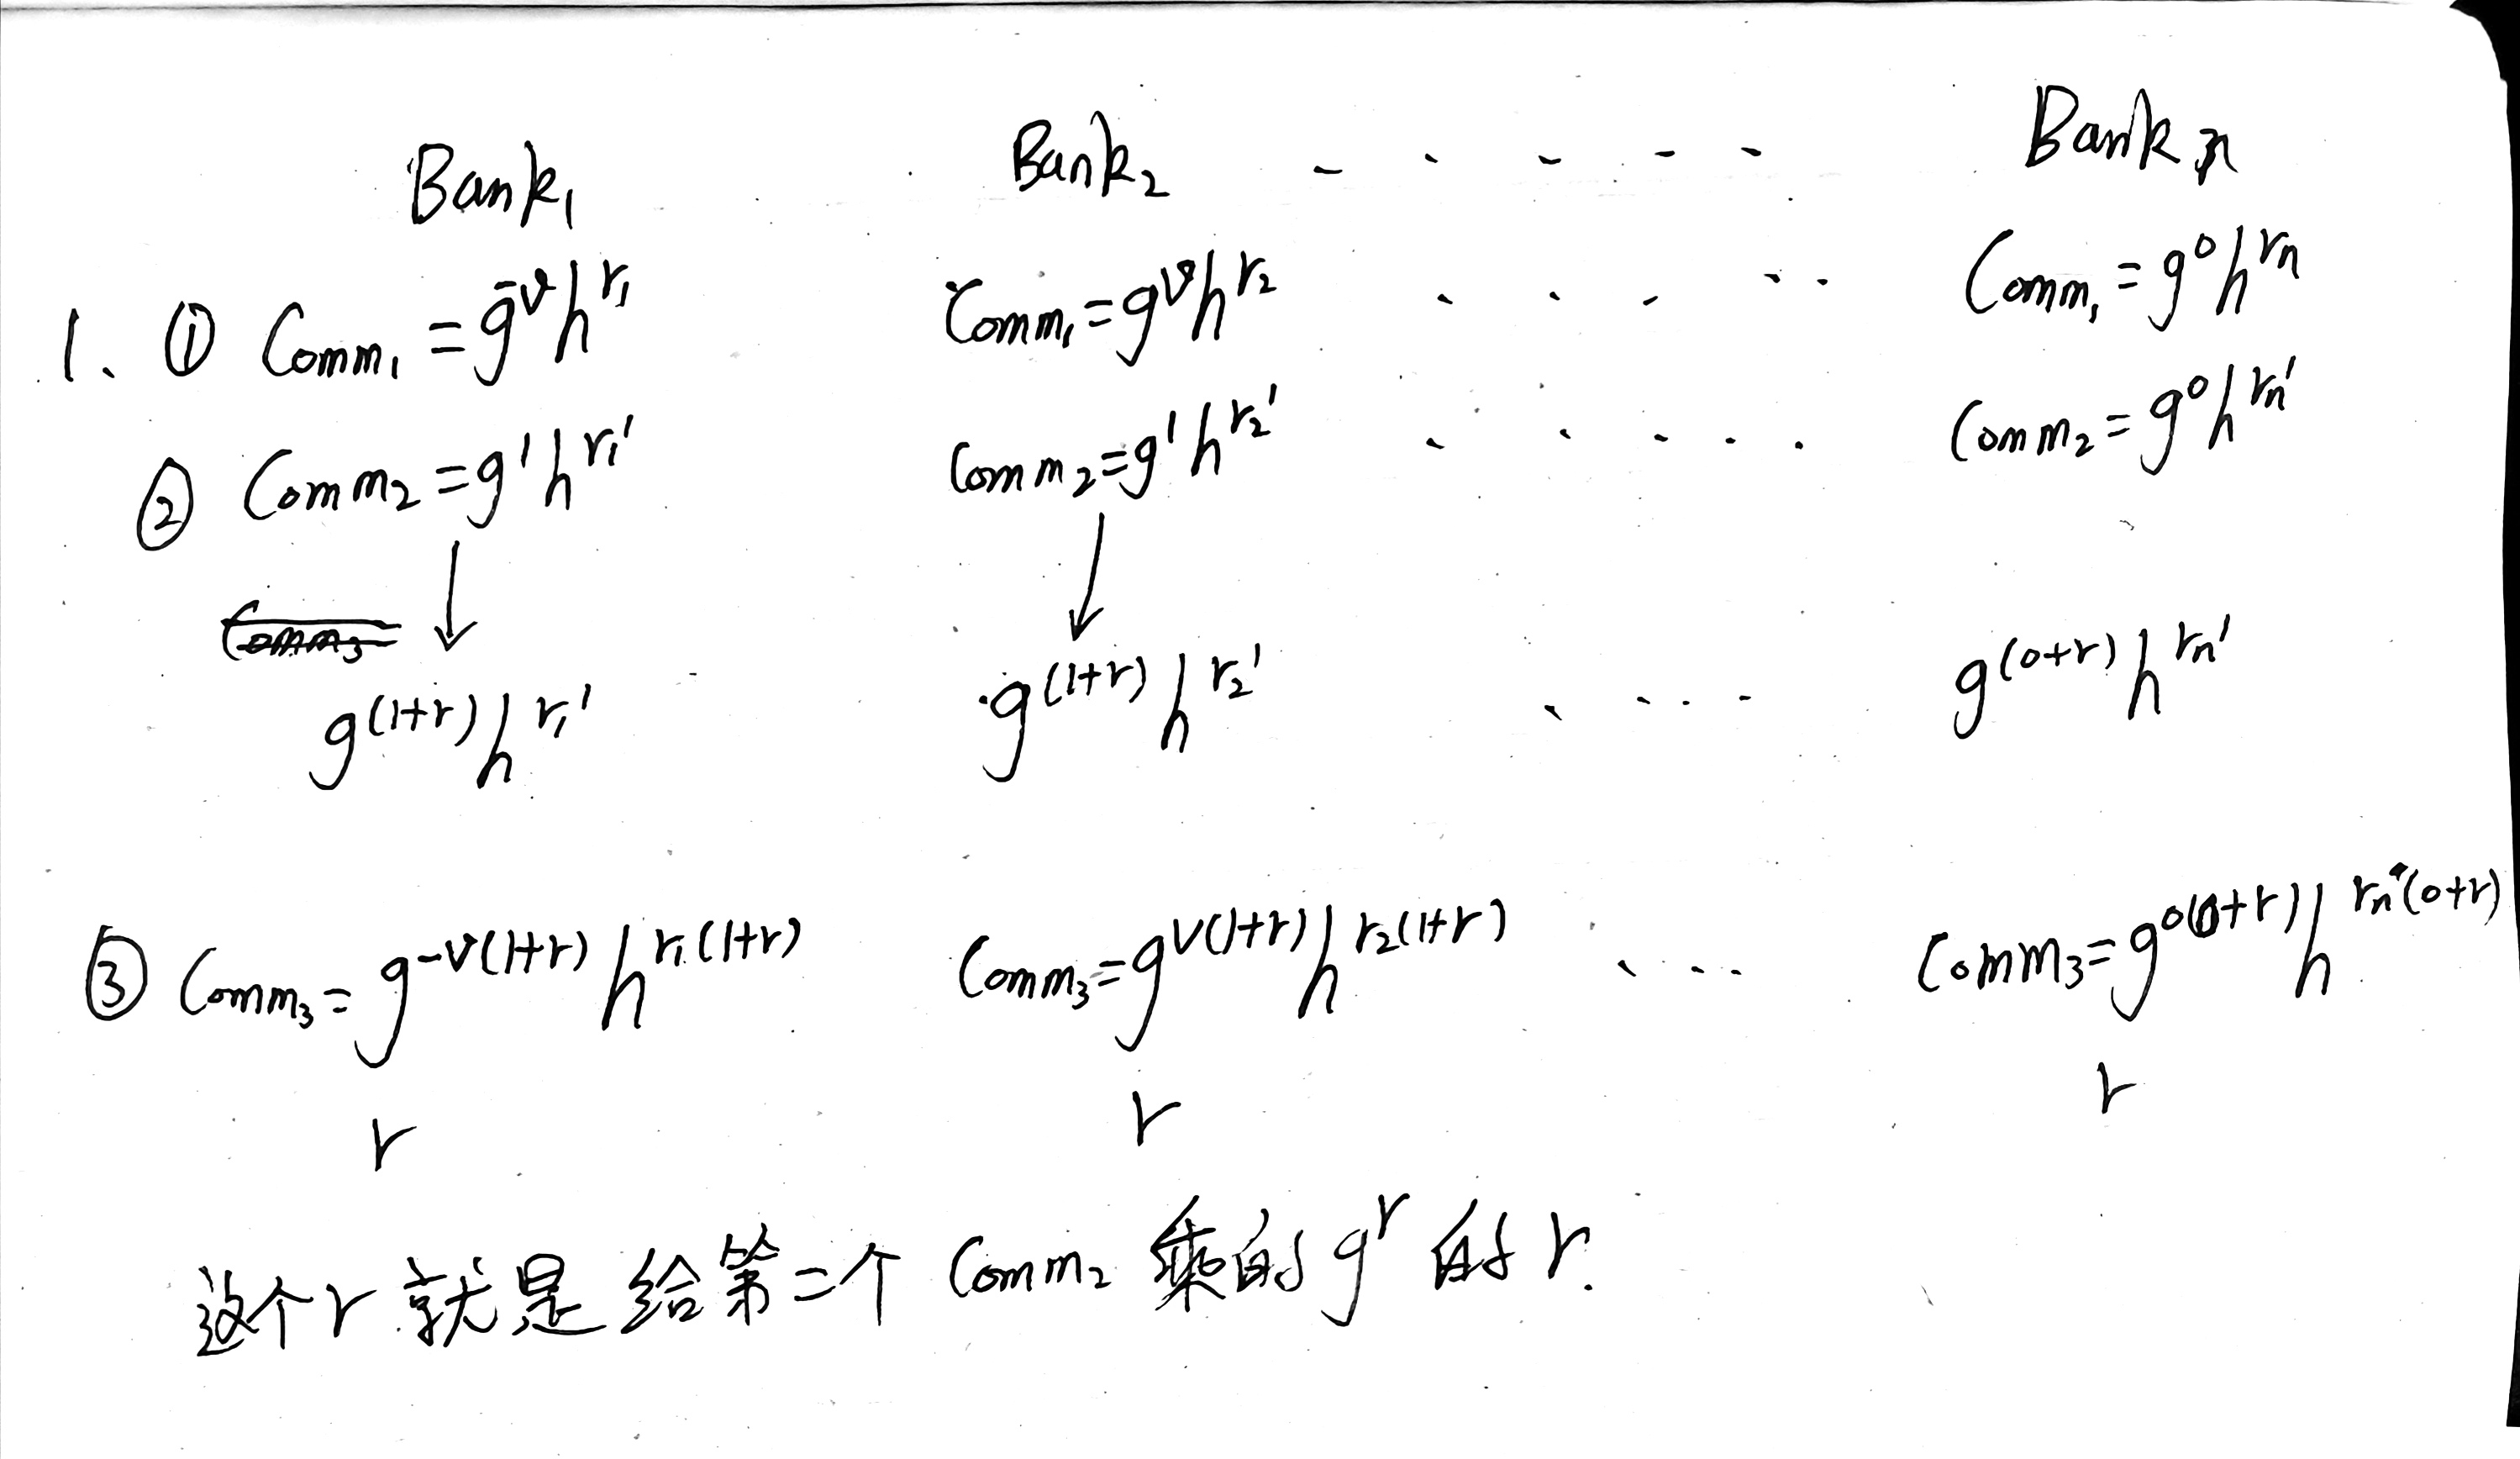 Bank₁ Bank₂ - - - - - Bank n
1、① Comm₁ = g^-v h^r₁ Comm₁ = g^v h^r₂ . . . . . Comm₁ = g^0 h^rn
② Comm₂ = g^1 h^r₁' Comm₂ = g^1 h^r₂' . . . . . Comm₂ = g^0 h^rn'
↓ ↓
g^(1+r) h^r₁' g^(1+r) h^r₂' . . . . g^(0+r) h^rn'
③ Comm₃ = g^-v(1+r) h^r₁(1+r) Comm₃ = g^v(1+r) h^r₂(1+r) . . . . Comm₃ = g^0(0+r) h^rn(0+r)
r r r
这个r就是给第二个 Comm₂ 乘的 g^r 的 r.